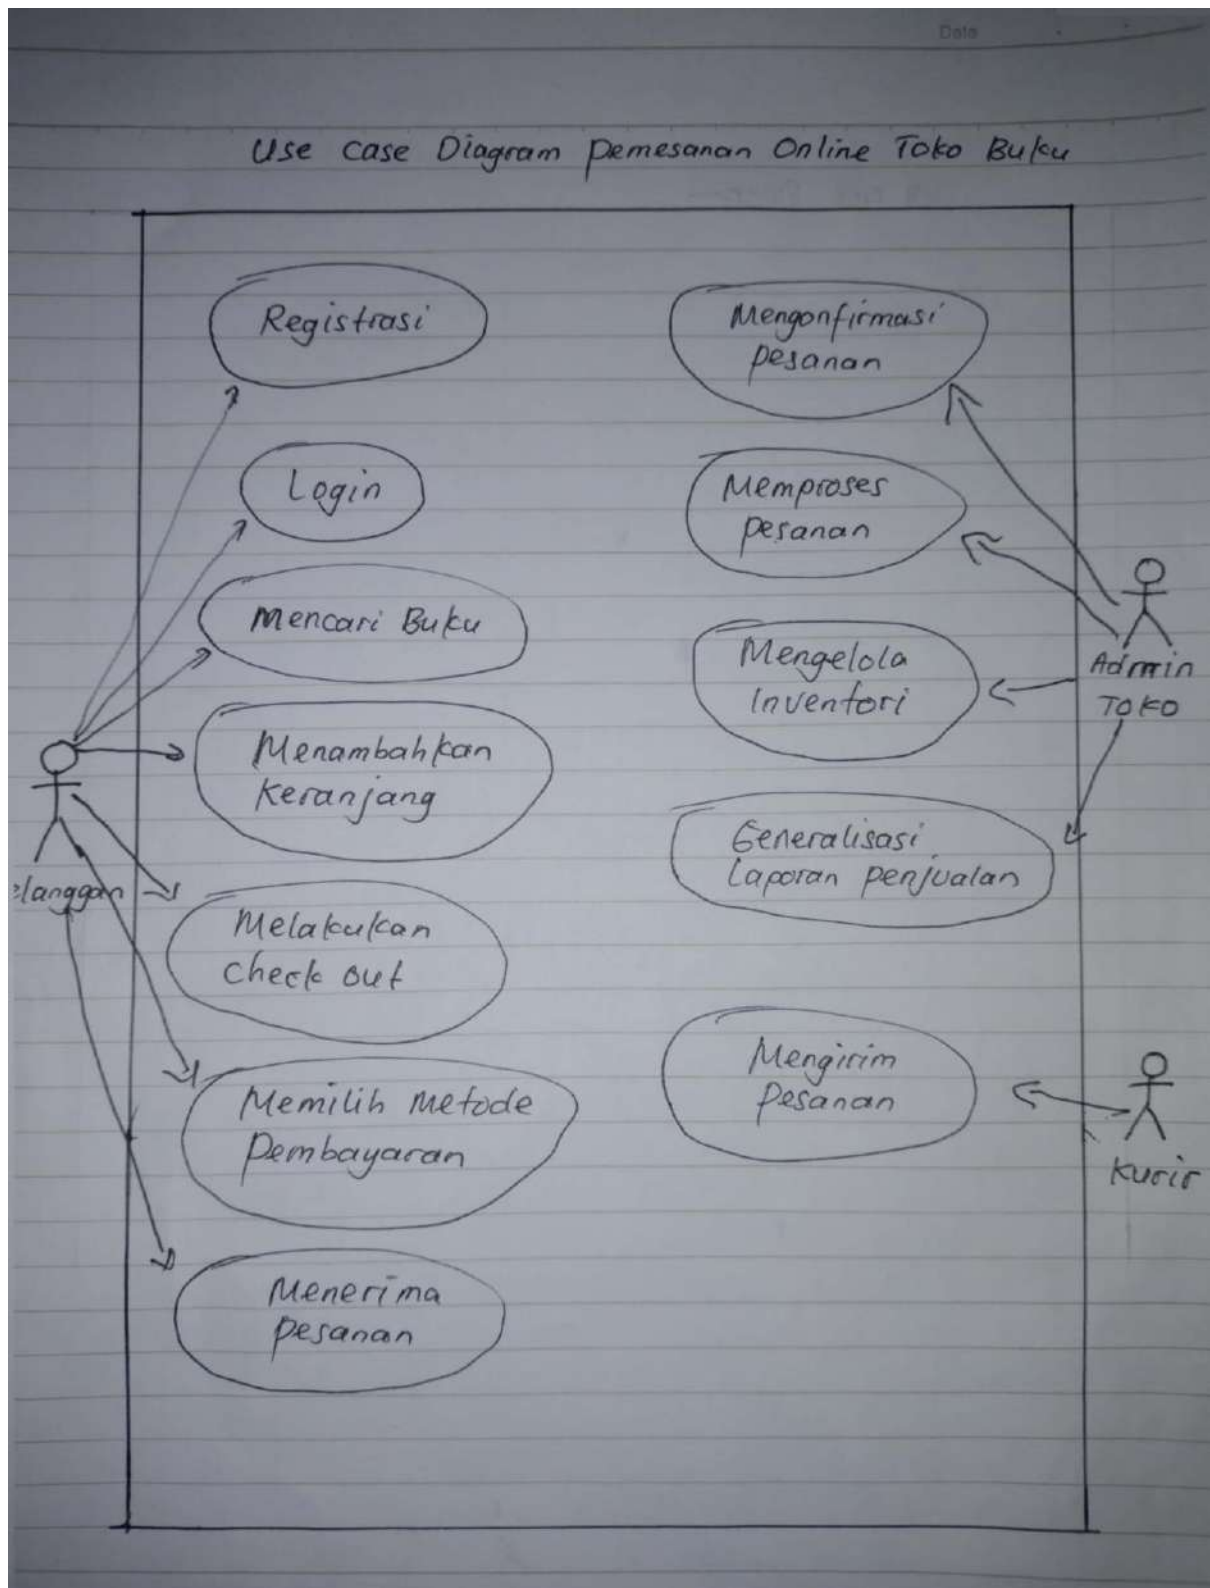 Data
Use Case Diagram Pemesanan Online Toko Buku
Registrasi
Login
Mencari Buku
Menambahkan
Keranjang
Melakukan
Check out
Memilih Metode
Pembayaran
Menerima
Pesanan
elanggan
Mengonfirmasi
pesanan
Memproses
pesanan
Mengelola
Inventori
Generalisasi
Laporan penjualan
Mengirim
Pesanan
Admin
TOKO
Kurir